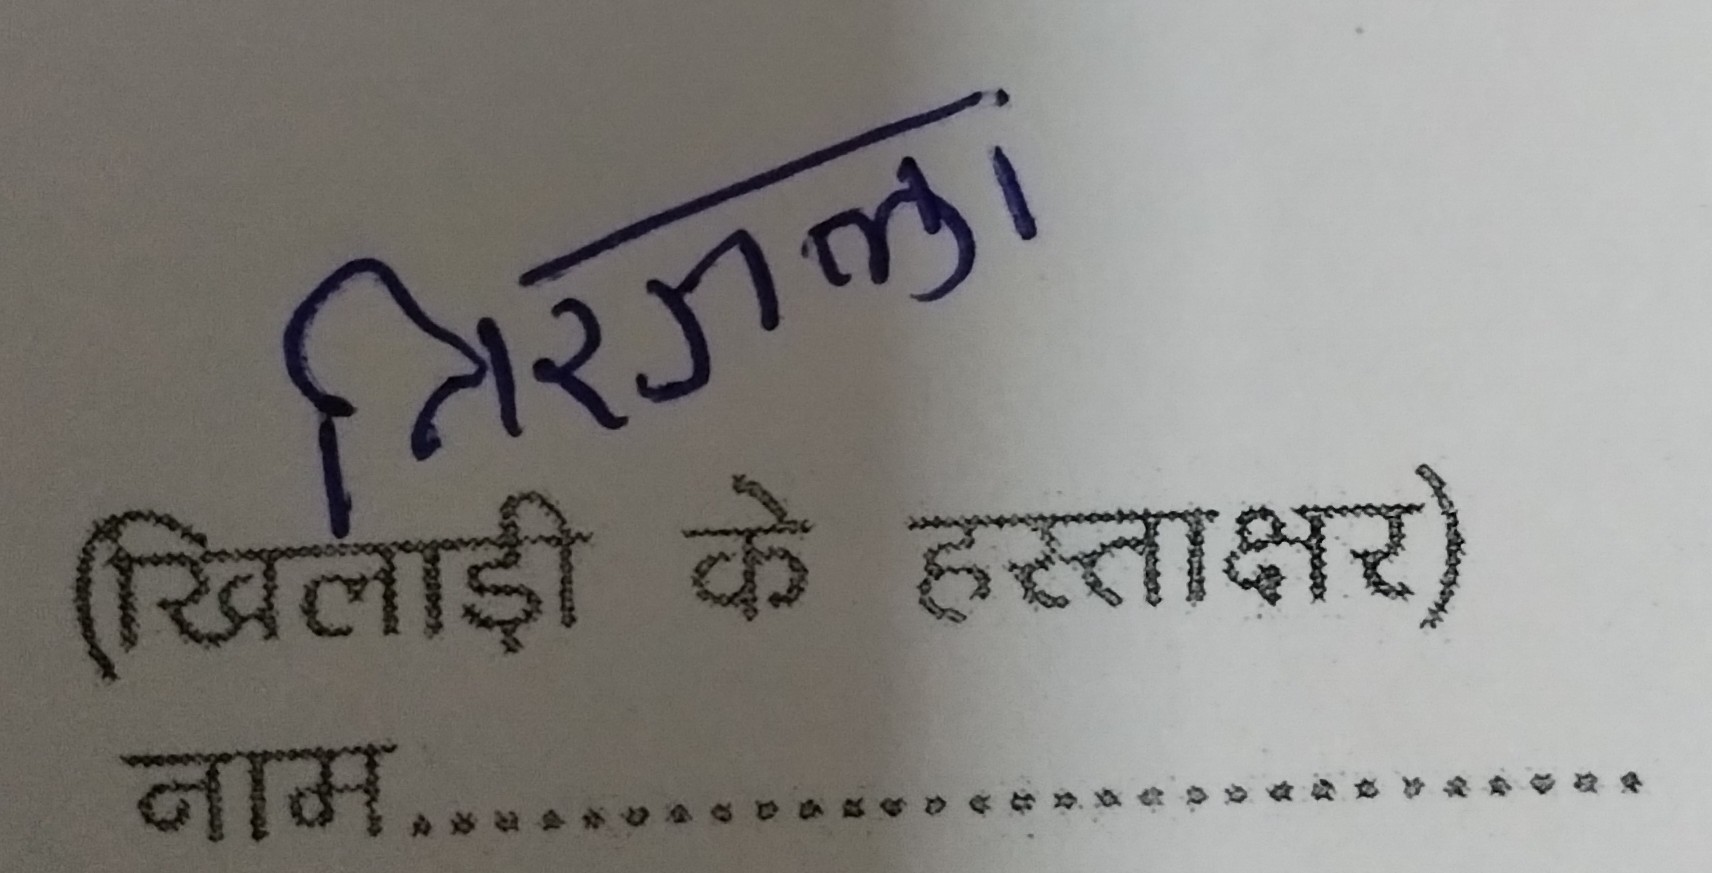 (खिलाड़ी के हस्ताक्षर)
नाम........................................